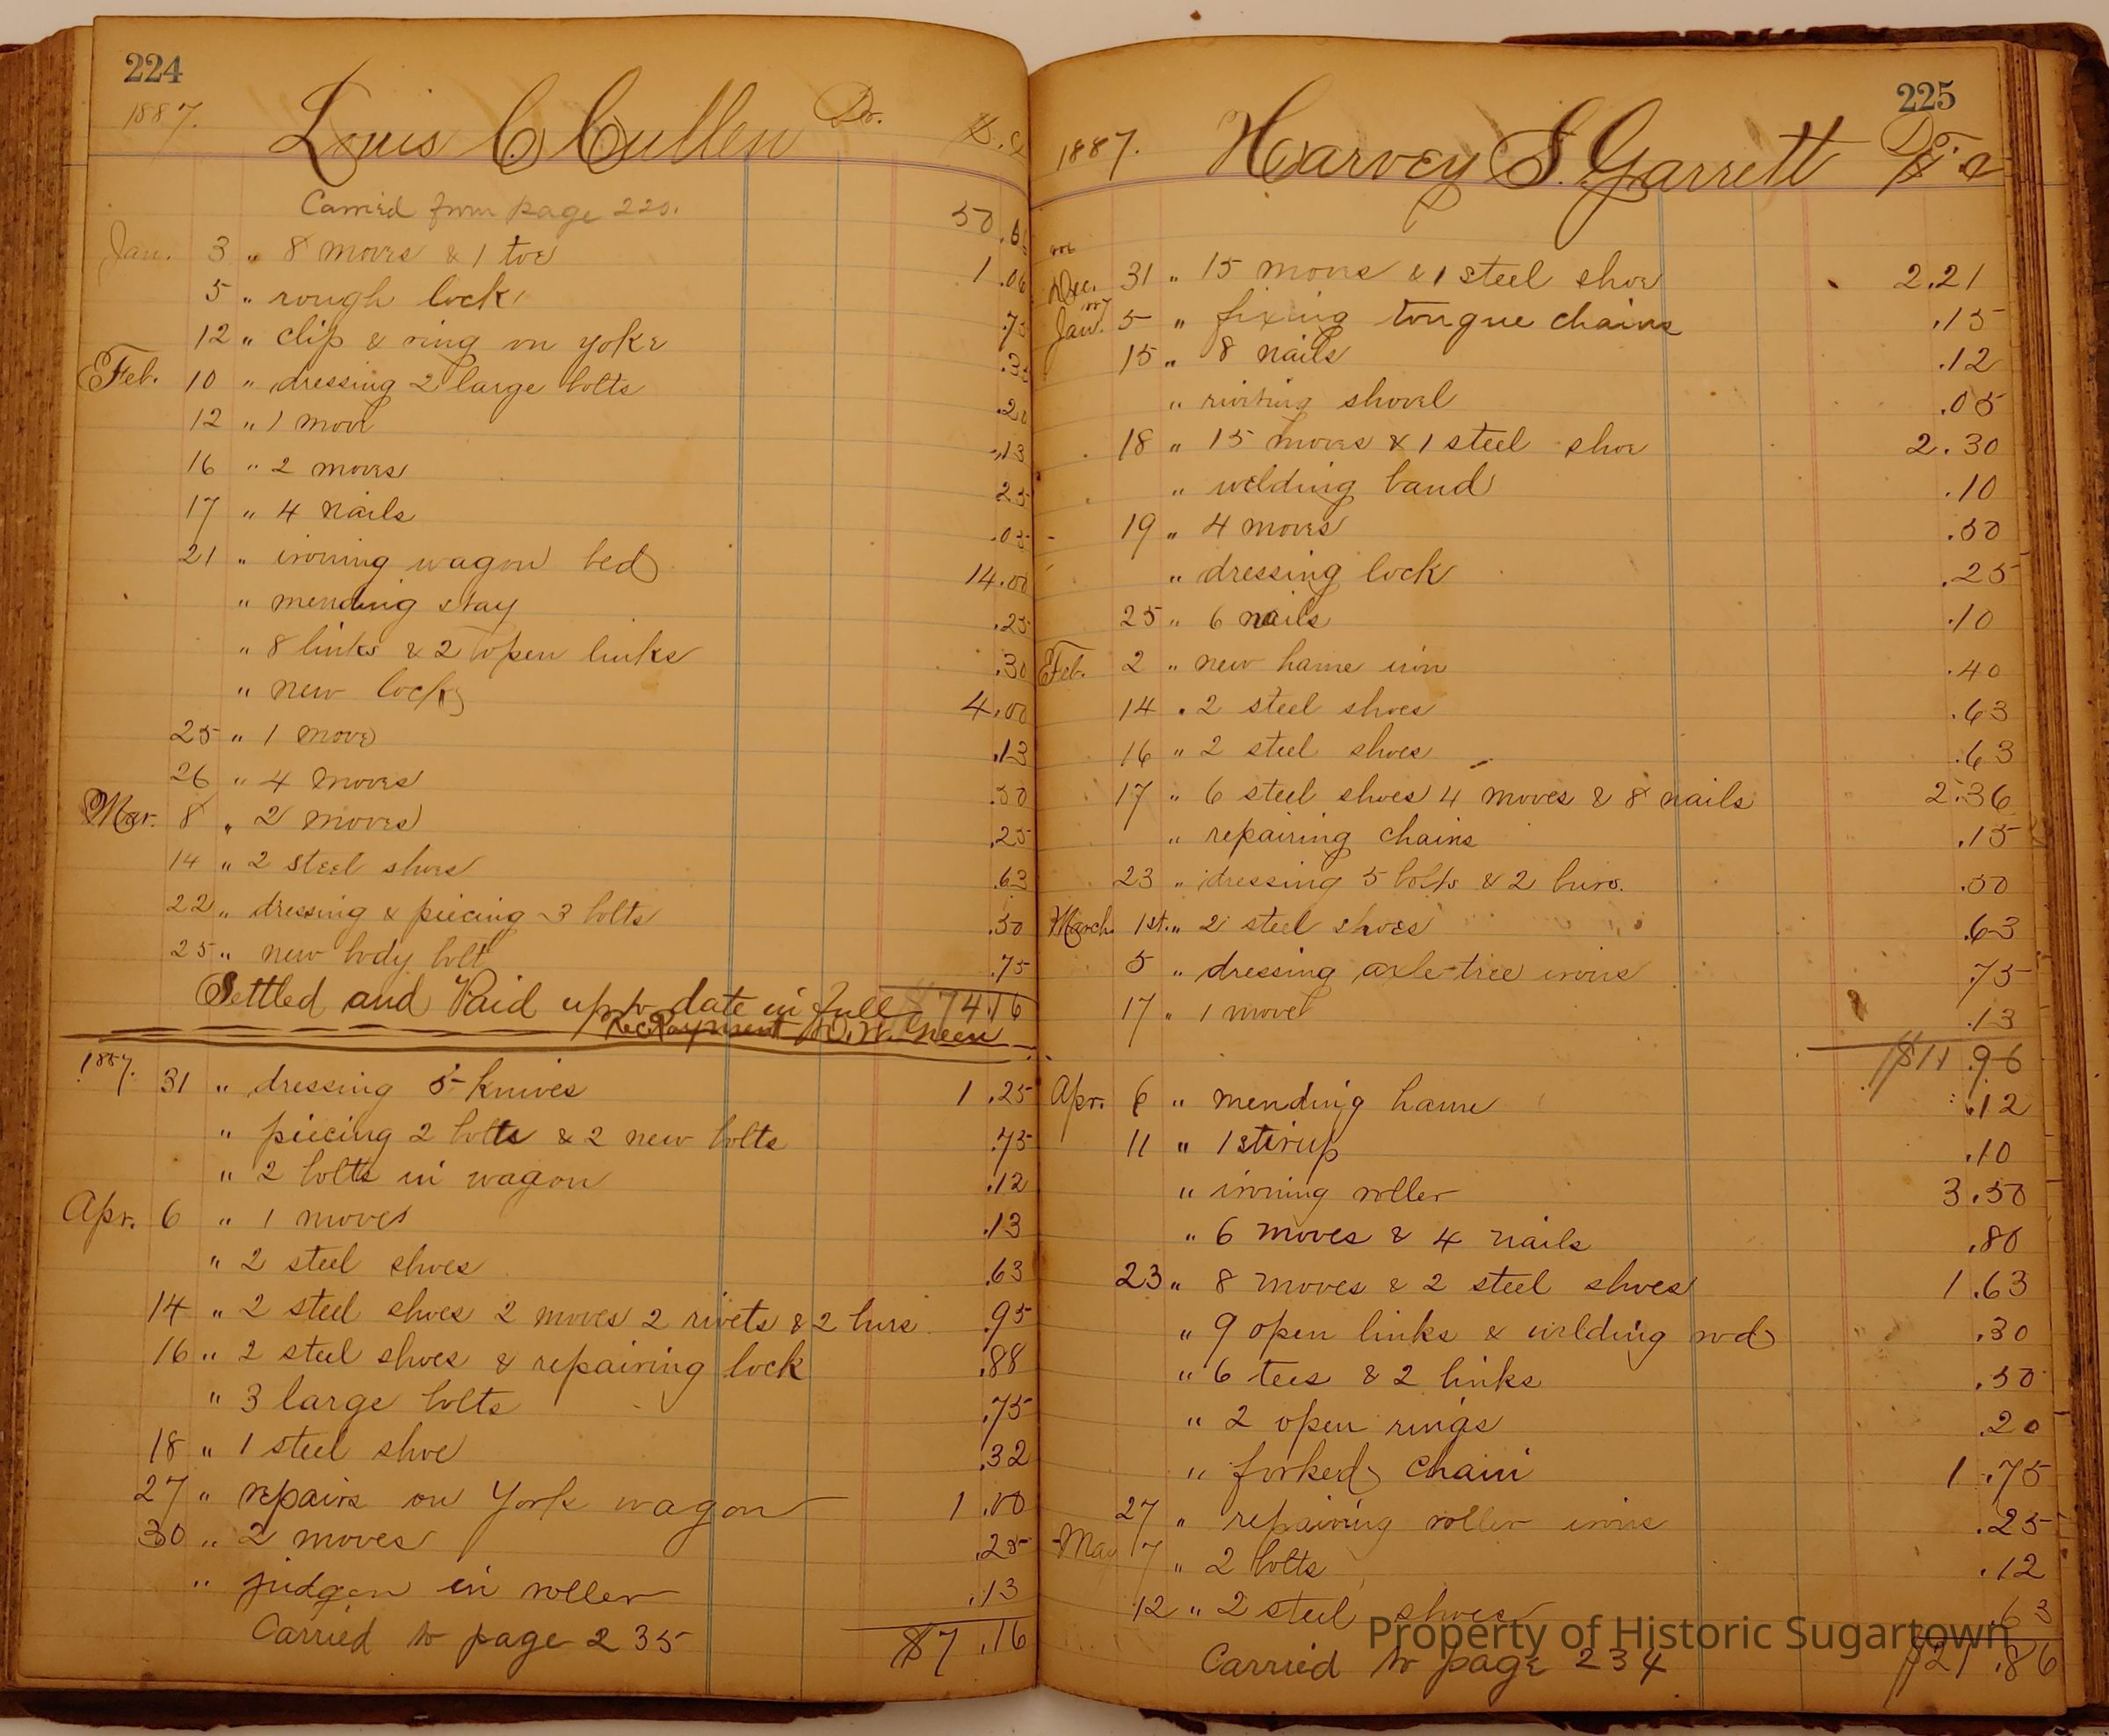 224
1887. Louis C. Cullen Dr. $. c
Carried from page 220. 50.
Jan. 3 " 8 moves & 1 toe 1.06
5 " rough lock .75
12 " clip & ring on yoke .35
Feb. 10 " dressing 2 large bolts .20
12 " 1 move .13
16 " 2 moves 25
17 " 4 nails .05
21 " ironing wagon bed 14.00
" mending stay .25
" 8 links & 2 open links .30
" new lock 4.00
25 " 1 move .13
26 " 4 moves .50
Mar. 8 " 2 moves .25
14 " 2 steel shoes .63
22 " dressing & piecing 3 bolts .50
25 " new body bolt .75
Settled and Paid up to date in full $74.16
Rec. Payment W. Green
1887. 31 " dressing 5 knives 1.25
" piecing 2 bolts & 2 new bolts .75
" 2 bolts in wagon .12
Apr. 6 " 1 move .13
" 2 steel shoes .63
14 " 2 steel shoes 2 moves 2 rivets & 2 burs .95
16 " 2 steel shoes & repairing lock .88
" 3 large bolts .75
18 " 1 steel shoe .32
27 " repairs on York wagon 1.00
30 " 2 moves .25
" judgen in roller .13
Carried to page 235 $7.16
225
1887. Harvey S. Garrett Dr. $ c
Dec. 31 " 15 moves & 1 steel shoe 2.21
Jan. 5 " fixing tongue chains .15
15 " 8 nails .12
" riviting shovel .05
18 " 15 moves & 1 steel shoe 2.30
" welding band .10
19 " 4 moves .50
" dressing lock .25
25 " 6 nails .10
Feb. 2 " new hame iron .40
14 " 2 steel shoes .63
16 " 2 steel shoes .63
17 " 6 steel shoes 4 moves & 8 nails 2.36
" repairing chains .15
23 " dressing 5 bolts & 2 burs. .50
March 1st. " 2 steel shoes .63
5 " dressing axle-tree irons .75
17 " 1 move .13
$11.96
Apr. 6 " mending hame .12
11 " 1 stirup .10
" ironing roller 3.50
" 6 moves & 4 nails .80
23 " 8 moves & 2 steel shoes 1.63
" 9 open links & welding rod .30
" 6 tees & 2 links .50
" 2 open rings .20
" forked chain 1.75
27 " repairing roller irons .25
May 7 " 2 bolts .12
12 " 2 steel shoes .63
Property of Historic Sugartown
Carried to page 234 $21.86